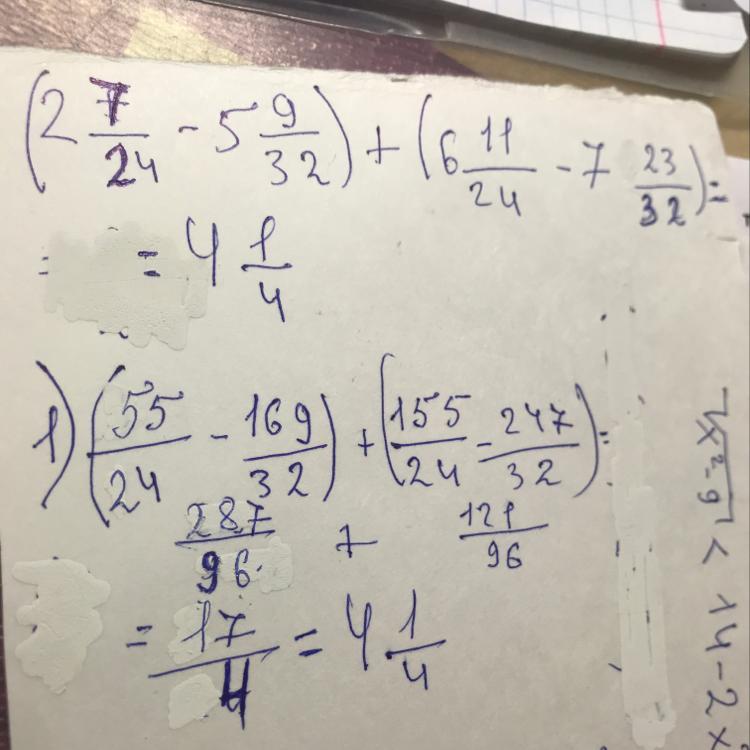 (2 7/24 - 5 9/32) + (6 11/24 - 7 23/32) =
= = 4 1/4
1) (55/24 - 169/32) + (155/24 - 247/32) =
287/96 + 121/96
= 17/4 = 4 1/4
√x²-9 < 14-2x